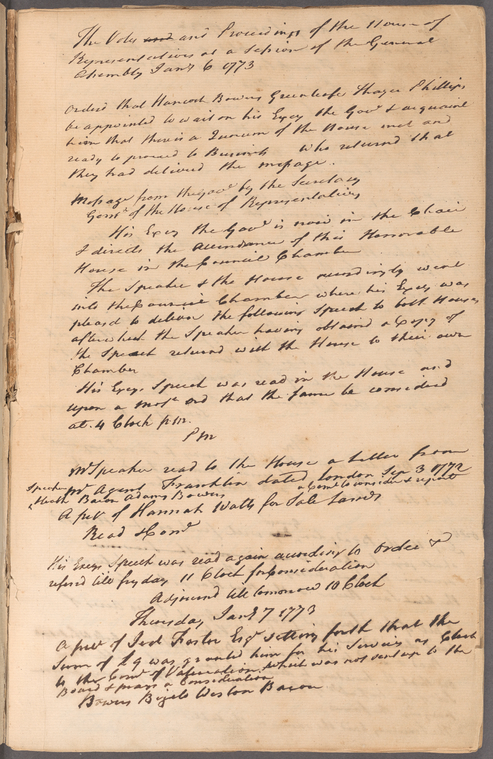 The Votes and and Proceedings of the House of
Representatives at a Session of the General
Assembly Jany 6 1773
Orderd that Hancock Bowers Greenleafe Thayer Phillips
be appointed to wait on his Excy the Govr & acquaint
him that there is a Quorum of the House met and
ready to proceed to Business Who returned that
they had deliverd the message.
Message from the Govr by the Secretary
Gentn of the House of Representatives
His Excy the Govr is now in the Chair
I directs the Attendance of this Honorable
House in the Council Chamber
The Speaker & the House accordingly went
into the Council Chamber where his Excy was
pleasd to deliver the following Speech to both Houses
after which the Speaker having obtaind a Copy of
the Speech returned with the House to their own
Chamber
His Excys Speech was read in the House and
upon a mon ord that the same be considerd
at 4 Clock P.M.
P M
Mr Speaker read to the House a Letter from
Mr Agent Franklin dated London Sep 3 1772
Speaker Heath Bacon Adams Bowers a Come to consider & report
A petn of Hannah Watts for Sale Lands
Read & Comd
His Excys Speech was read again according to Order &
referd till fryday 11 Clock for Consideration
Adjournd till tomorrow 10 Clock
Thursday Jany 7 1773
A petn of Jedh Foster Esqr setting forth that the
Sum of £9 was granted him for his Services as Clerk
to the Comt of Valuation, which was not sent up to the
Board & prays a Consideration
Bowers Weston Bacon